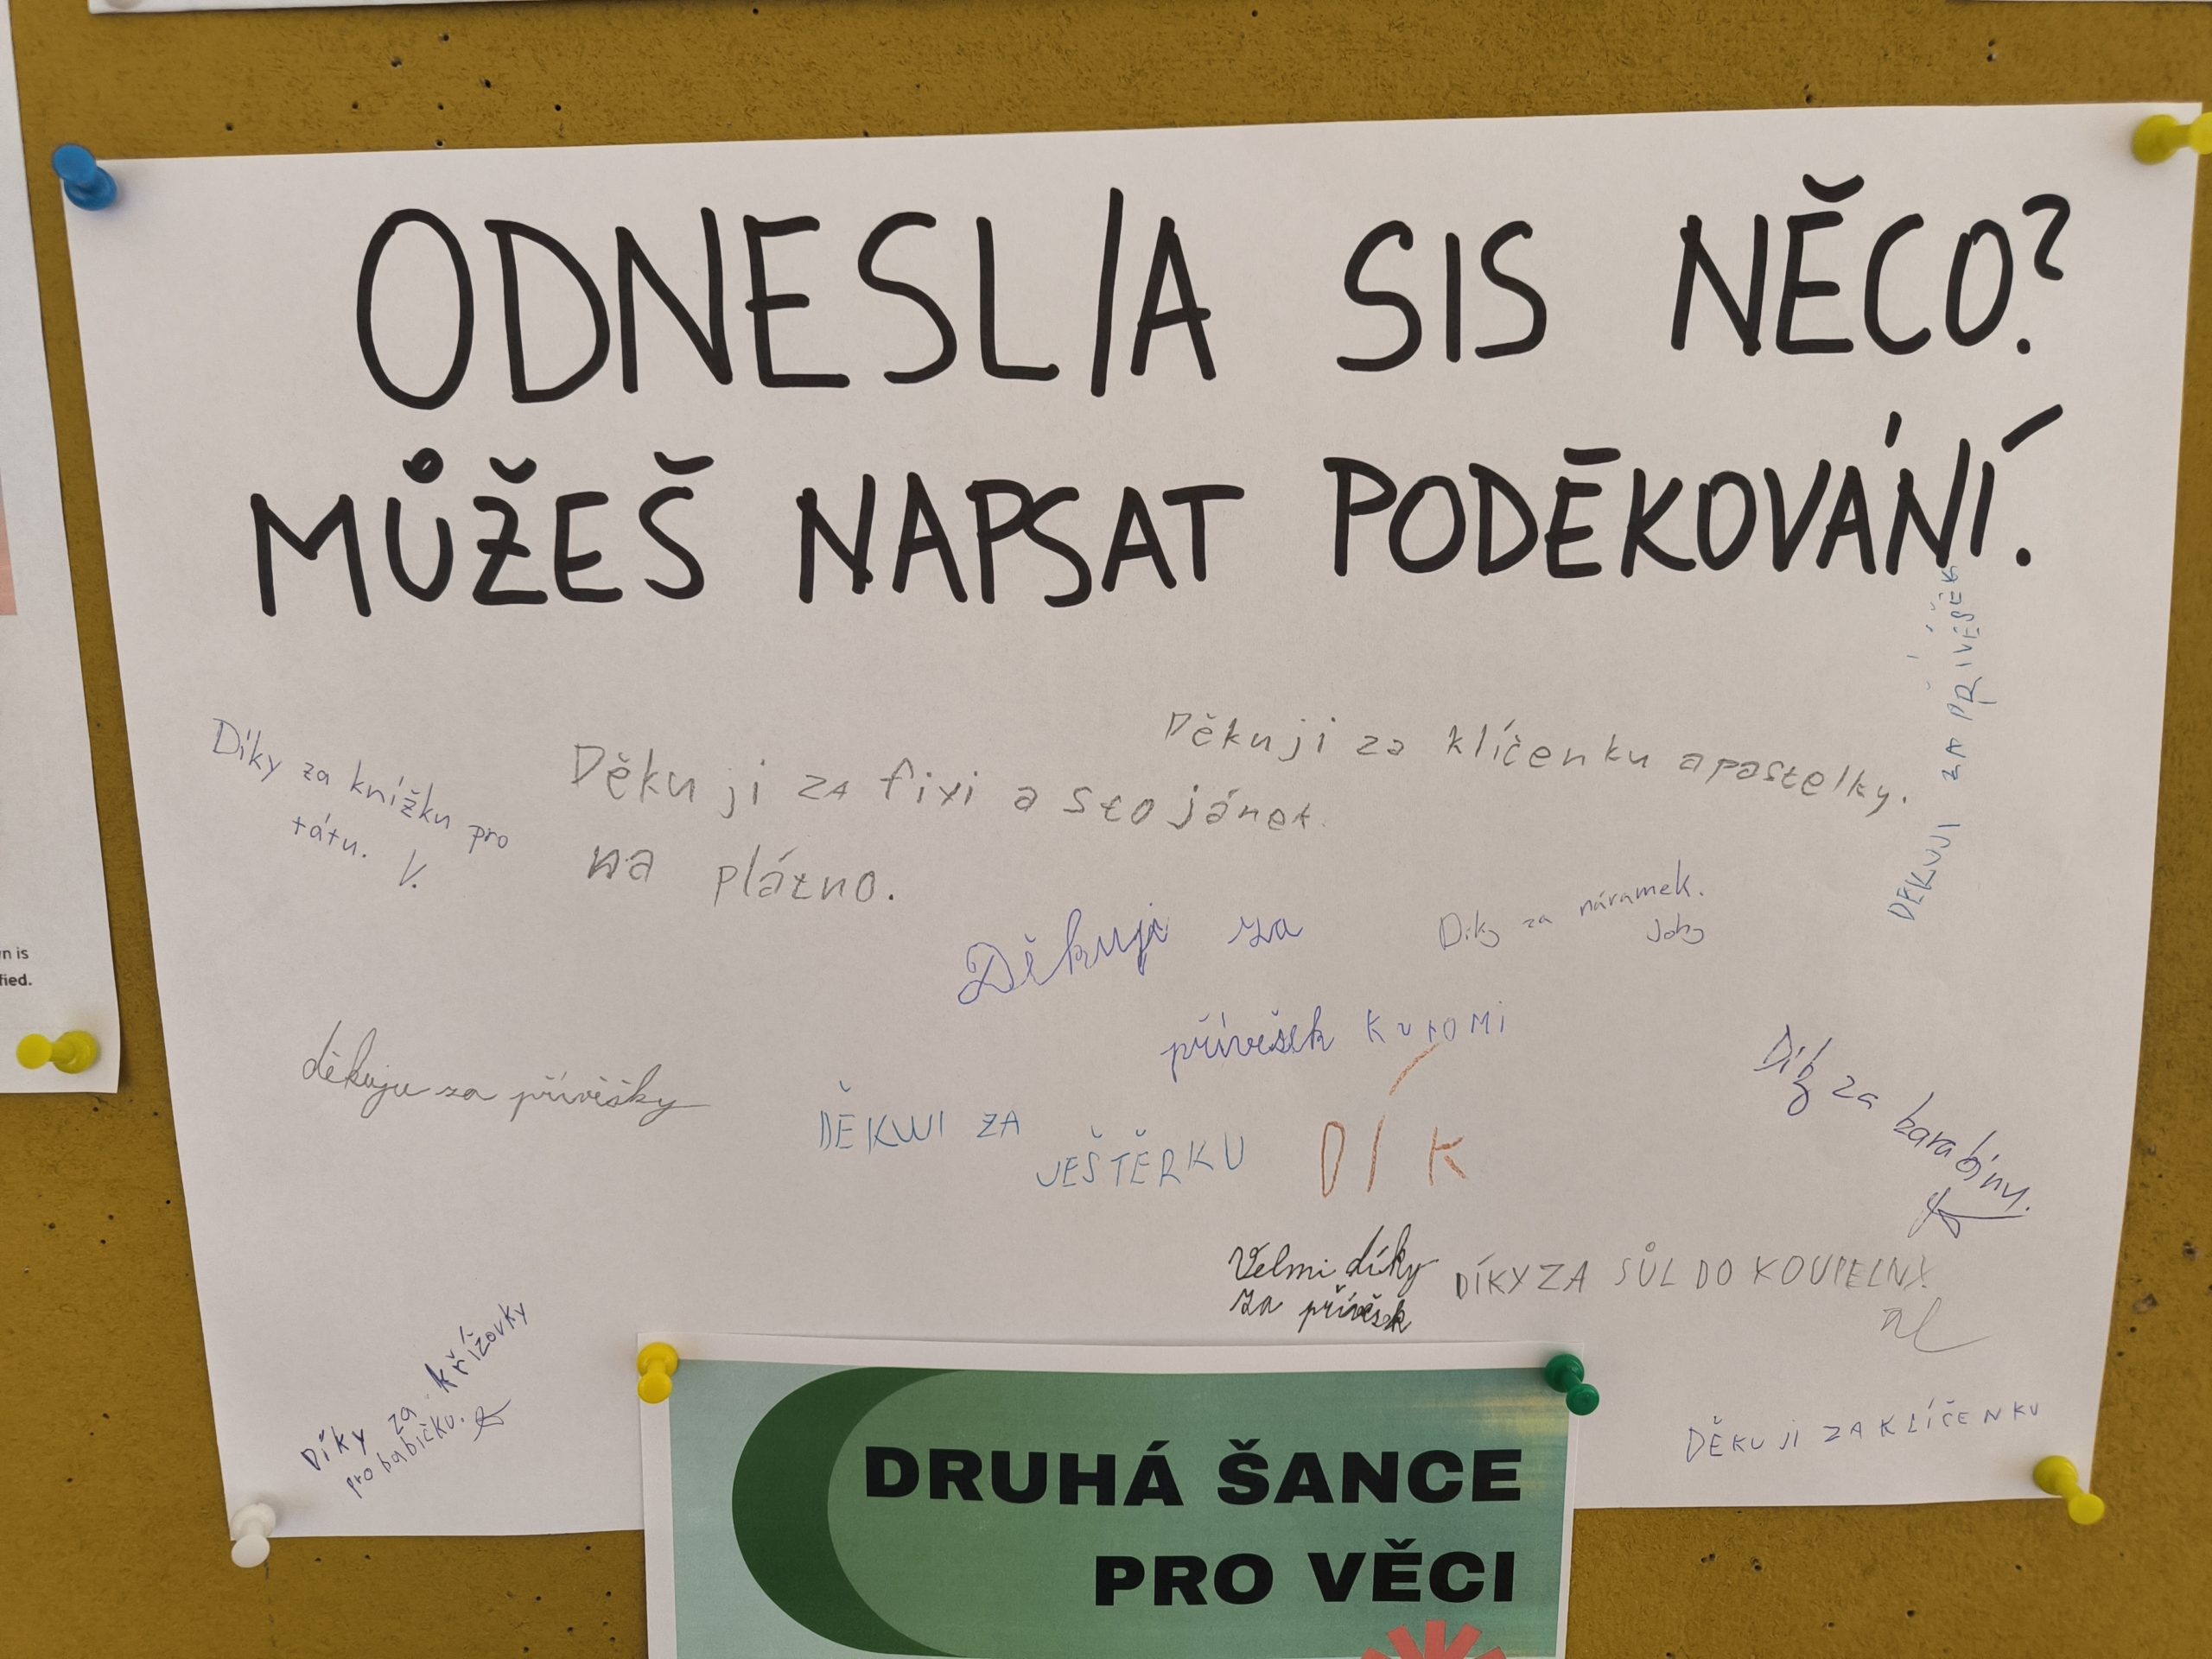 ODNESL/A SIS NĚCO?
MŮŽEŠ NAPSAT PODĚKOVÁNÍ.
DĚKUJI ZA PŘÍVĚŠEK
Díky za knížku pro
tátu. V.
Děkuji ZA fixi a stojánek.
na plátno.
Děkuji za klíčenku a pastelky.
Děkuji za
přívěšek KUROMI
Díky za náramek.
děkuju za přívěšky
DĚKUJI ZA
JEŠTĚRKU
DÍK
Díky za karabinu.
Velmi díky
za přívěšek
DÍKY ZA SŮL DO KOUPELNY
Díky za křížovky
pro babičku.
DĚKUJI ZA KLÍČENKU
DRUHÁ ŠANCE
PRO VĚCI
n is
fied.